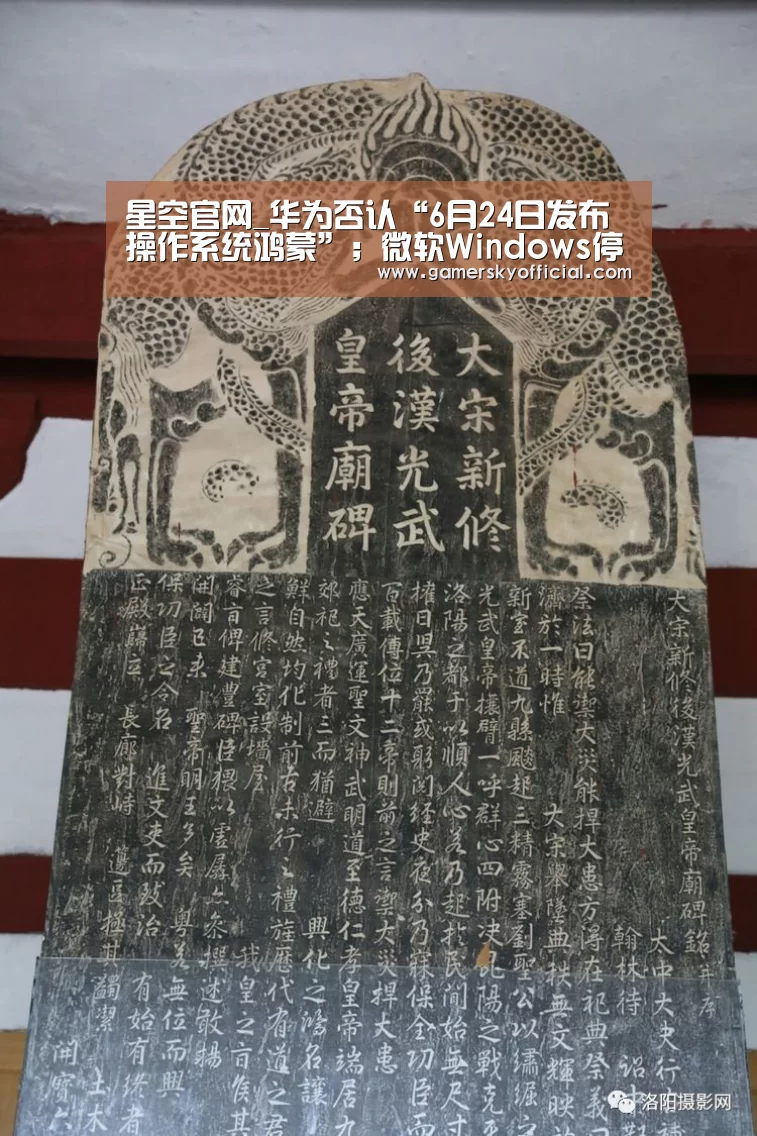 星空官网_华为否认“6月24日发布
操作系统鸿蒙”；微软Windows停
www.gamerskyofficial.com
大宋新修
後漢光武
皇帝廟碑
大宋新修後漢光武皇帝廟碑銘并序
太中大夫行
翰林待 詔
祭法曰能禦大災能捍大患方得在祀典祭義曰
濟於一時惟 大宋舉墜典秩無文輝映
新室不道九縣飈起三精霧塞劉聖公以繡𧝑之
光武皇帝攘臂一呼群心四附决昆陽之戰克
洛陽之都于以順人心若乃起於民間始無尺寸
櫂日昃乃罷或躬閱經史夜分乃寐保全功臣而
百載傳位十二帝則前之言禦大災捍大患
應天廣運聖文神武明道至德仁孝皇帝端居九
郊祀之禮者三而猶避 興化之
名讓
鮮自然均化制前古未行之禮旌歷代有道之君
之言修宮室設墻屋 我皇之言俟其
睿旨俾建豊碑臣猥以虛孱叅撰述敢揚
開闢已来 聖帝明王多矣 粤若無位而興
保功臣之令名 進文吏而致治 有始有终者
正殿巋立 長廊對峙 籩豆極其蠲潔 土木
開寶六
洛阳摄影网